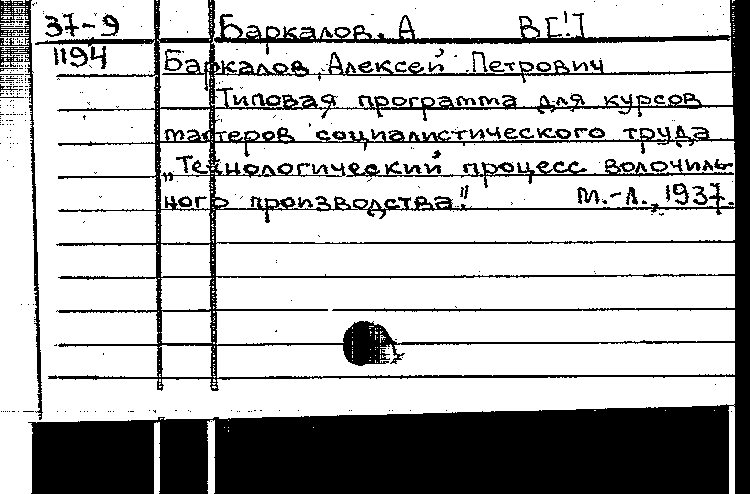 37-9 Баркалов, А В[!]
1194 Баркалов, Алексей Петрович
Типовая программа для курсов
мастеров социалистического труда
„Технологический процесс волочиль-
ного производства." М.-Л., 1937.